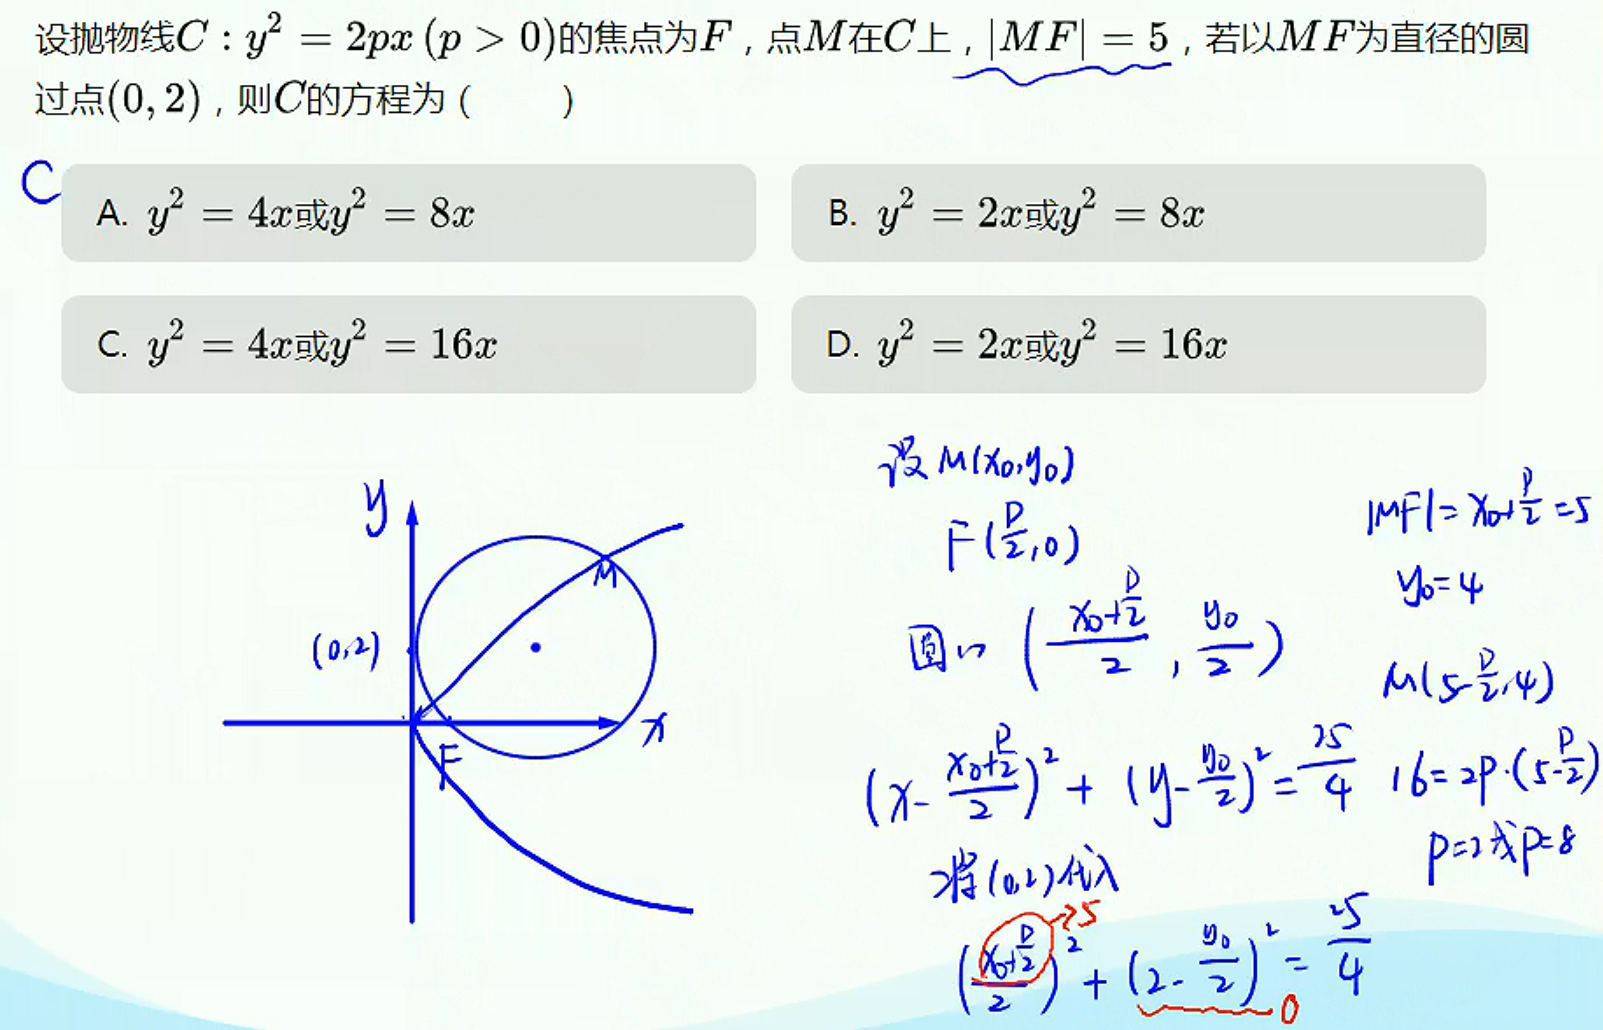 设抛物线C : y² = 2px (p > 0)的焦点为F，点M在C上，|MF| = 5，若以MF为直径的圆
过点(0, 2)，则C的方程为 (    )
C
A. y² = 4x或y² = 8x
B. y² = 2x或y² = 8x
C. y² = 4x或y² = 16x
D. y² = 2x或y² = 16x
y
M
(0,2)
x
F
设 M(x₀,y₀)
F(p/2,0)
圆心 ((x₀+p/2)/2, y₀/2)
(x-(x₀+p/2)/2)² + (y-y₀/2)² = 25/4
将(0,2)代入
((x₀+p/2)/2)² + (2-y₀/2)² = 25/4
→5
0
|MF|=x₀+p/2=5
y₀=4
M(5-p/2,4)
16=2p·(5-p/2)
p=2或p=8